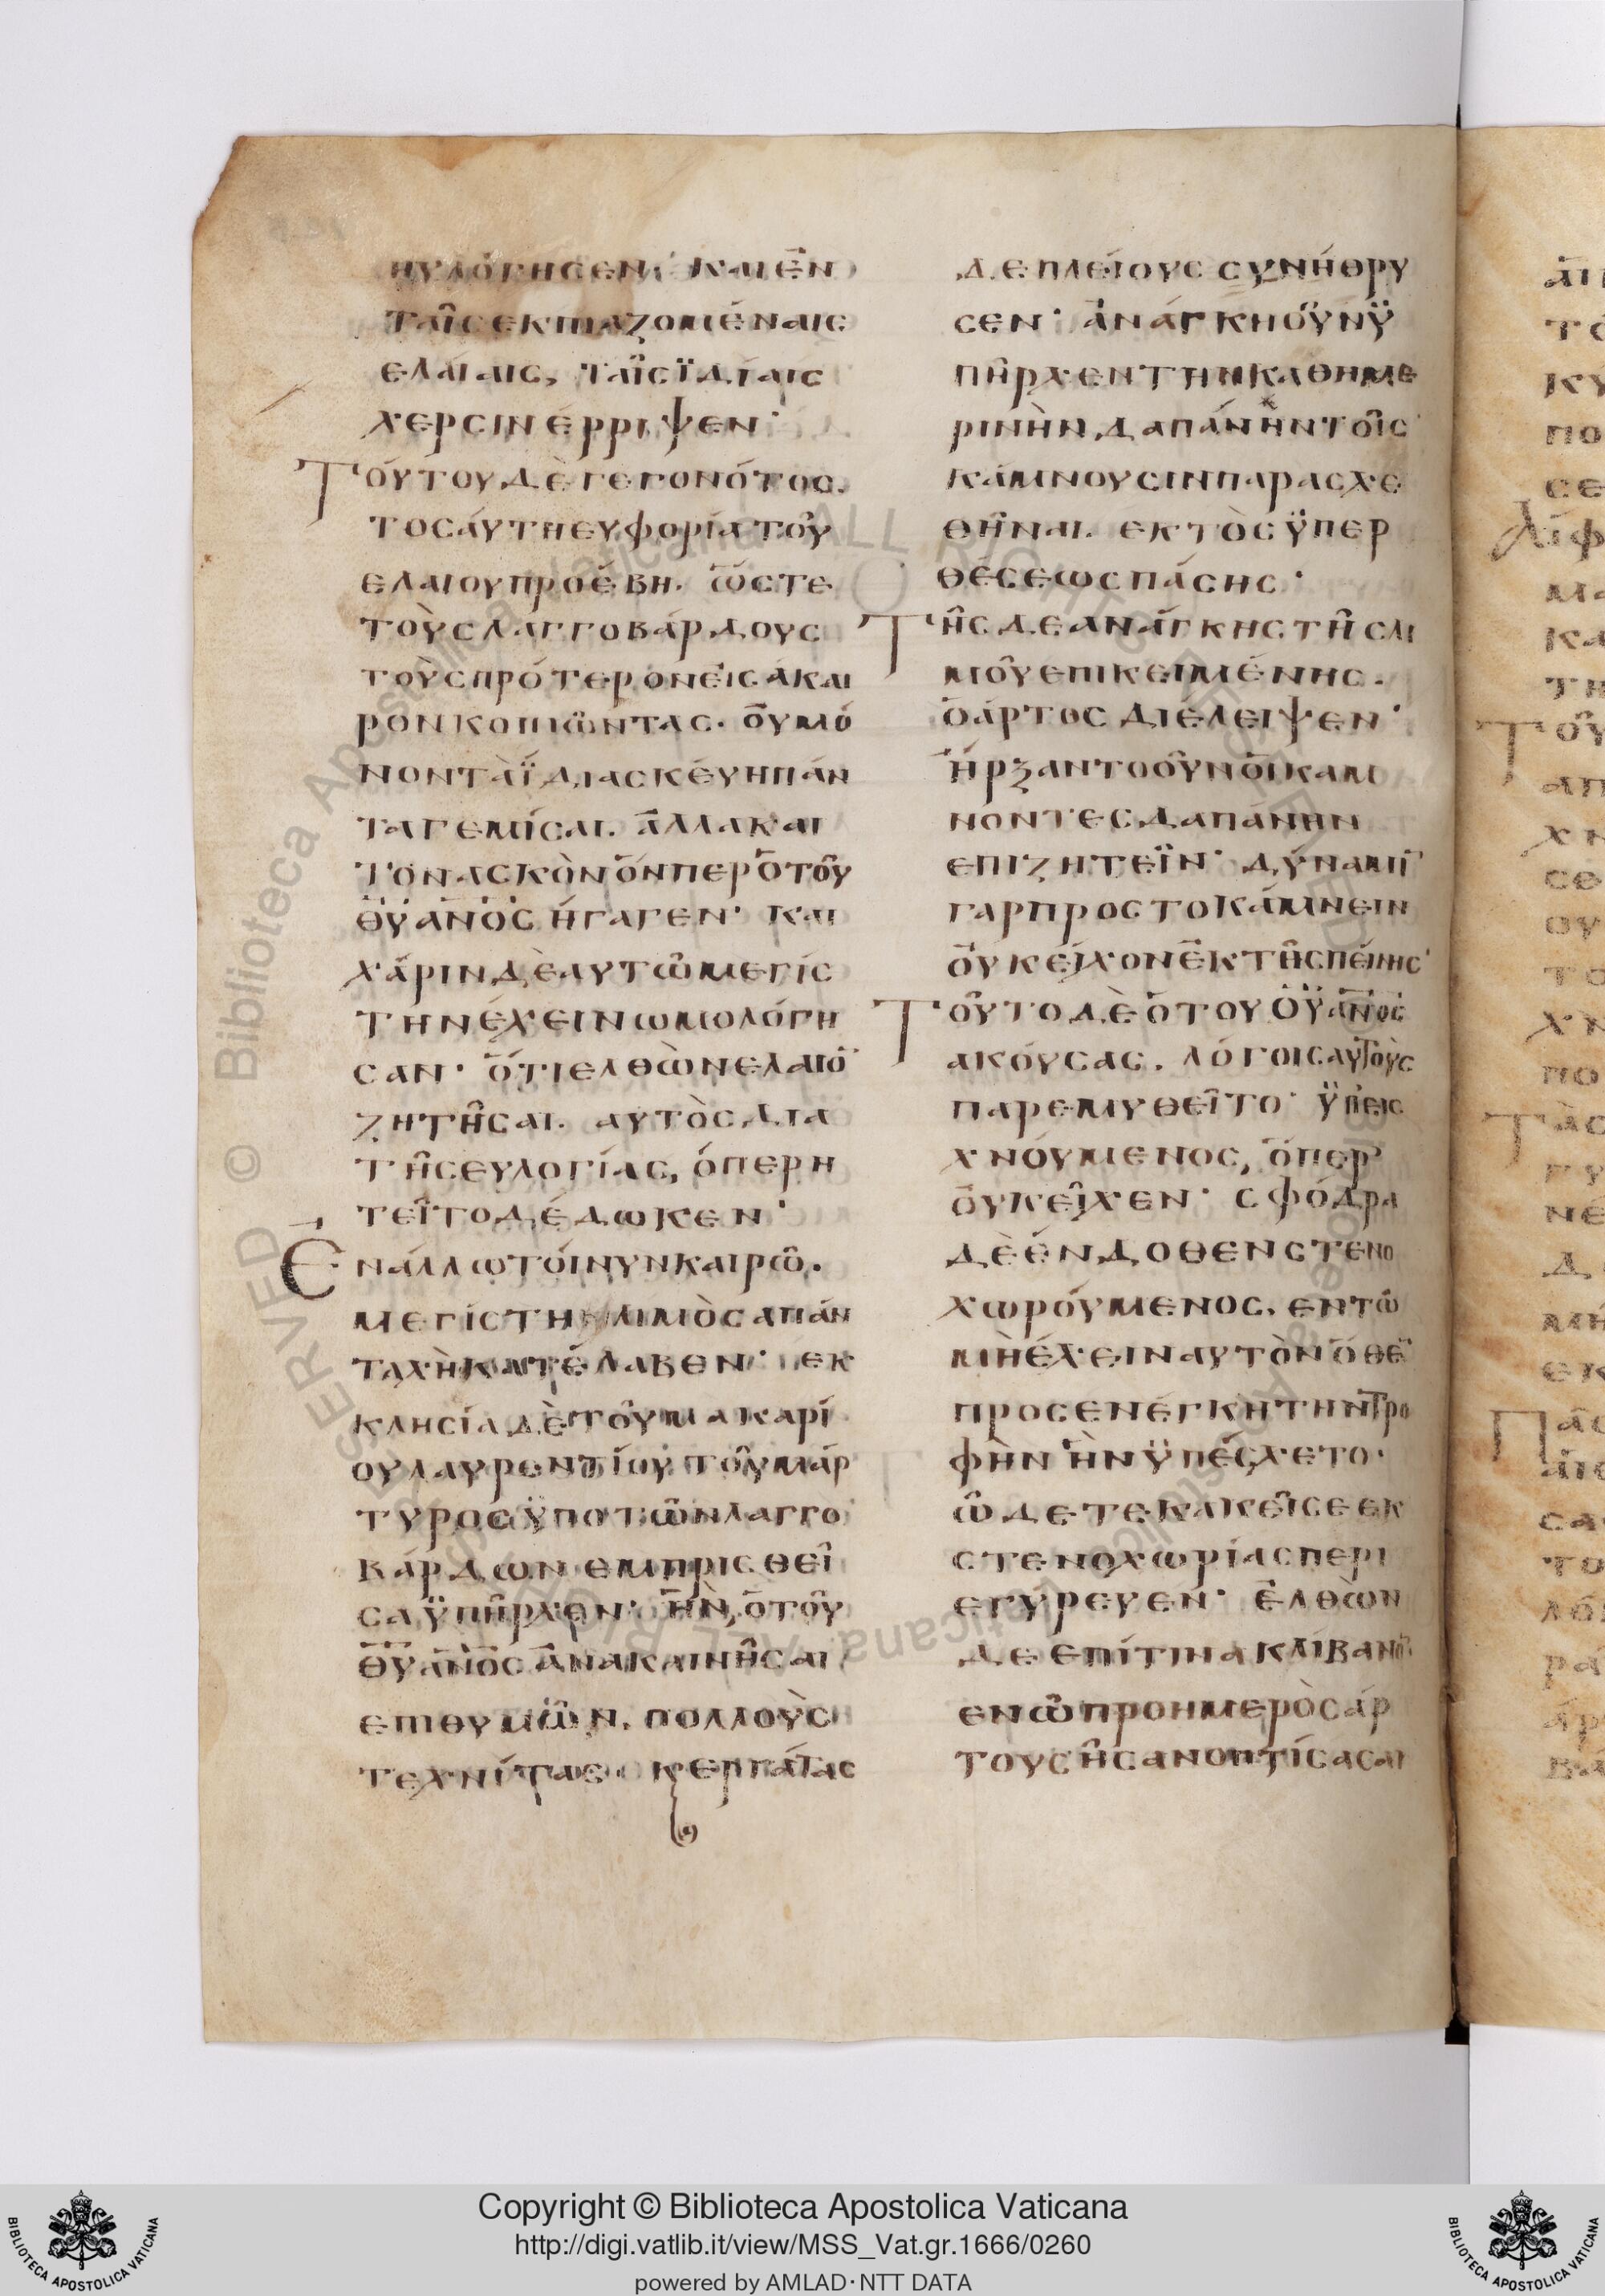 ηυλόγησεν· και ἐν
ταῖς εκπιαζομέναις
ελαίαις, ταῖς ϊδίαις
χερσὶν έρριψεν·
Τούτου δὲ γεγονότος.
τοσάυτη ευφορία τοῦ
ελαίου προέβη. ὥστε
τοὺς λαγγοβάρδους
τοὺς πρότερον εἰς άκαι
ρον κοπιῶντας. ὀυ μό
νον τὰ ΐδια σκέυη πάν
τα γεμίσαι. ἀλλα και
τὸν ασκὸν ὅνπερ ὁ τοῦ
θ̅υ̅ α̅ν̅ο̅ς̅ ήγαγεν· και
χάριν δὲ αυτῶ μεγίς
την έχειν ωμολόγη
σαν· ὅτι ελθὼν ελαιο̅
ζητῆσαι. αυτὸς δια
τῆς ευλογίας, ὅπερ η
τεῖτο δέδωκεν·
Ἐν άλλω τοίνυν καιρῶ.
μεγίστην λιμὸς απάν
ταχὴ κατέλαβεν· εκ
κλησία δὲ τοῦ μακαρί
ου λαυρεντίου τοῦ μάρ
τυρος ϋπο τῶν λαγγο
βάρδων εμπρισθεῖ
σα ϋπῆρχεν· ἣν, ὁ τοῦ
θ̅υ̅ α̅ν̅ο̅ς̅ ἀνακαινῆσαι
επιθυμῶν. πολλοὺς
τεχνίτας κ εργάτας
δε πλείους συνήθρυ
σεν· ἀνάγκη οῦν ϋ
πῆρχεν την καθημε
ρινὴν δαπάνην τοῖς
κάμνουσιν παρασχε
θῆναι. εκτὸς ϋπερ
θέσεως πάσης·
Τῆς δε ανάγκης τῆς λι
μοῦ επικειμένης.
ὁ άρτος διέλειψεν·
Ἤρξαντο οῦν ὁι καμ
νοντες δαπάνην
επιζητεῖν· δύναμι̅
γαρ προς το κάμνειν
ὀυκ είχον ἐκ τῆς πείνης·
Τοῦτο δὲ ὁ του θ̅υ̅ α̅ν̅ο̅ς̅
ακόυσας. λόγοις αυτοὺς
παρεμυθεῖτο· ϋπεις
χνόυμενος, ὅπερ
ὀυκ εῖχεν· σφόδρα
δὲ ένδοθεν στενο
χωρόυμενος. εν τῶ
μὴ έχειν αυτὸν ὅθε̅
προσενέγκη την τρο
φὴν ἣν ϋπέσχετο·
ῶδε τε κακεῖσε εκ
στενοχωρίας περι
εγύρευεν· ἐλθὼν
δε επί τινα κλίβανο̅
εν ῶ προημερὸς άρ
τους ῆσαν οπτίσασαι
Copyright © Biblioteca Apostolica Vaticana
http://digi.vatlib.it/view/MSS_Vat.gr.1666/0260
powered by AMLAD·NTT DATA
BIBLIOTECA APOSTOLICA VATICANA
BIBLIOTECA APOSTOLICA VATICANA